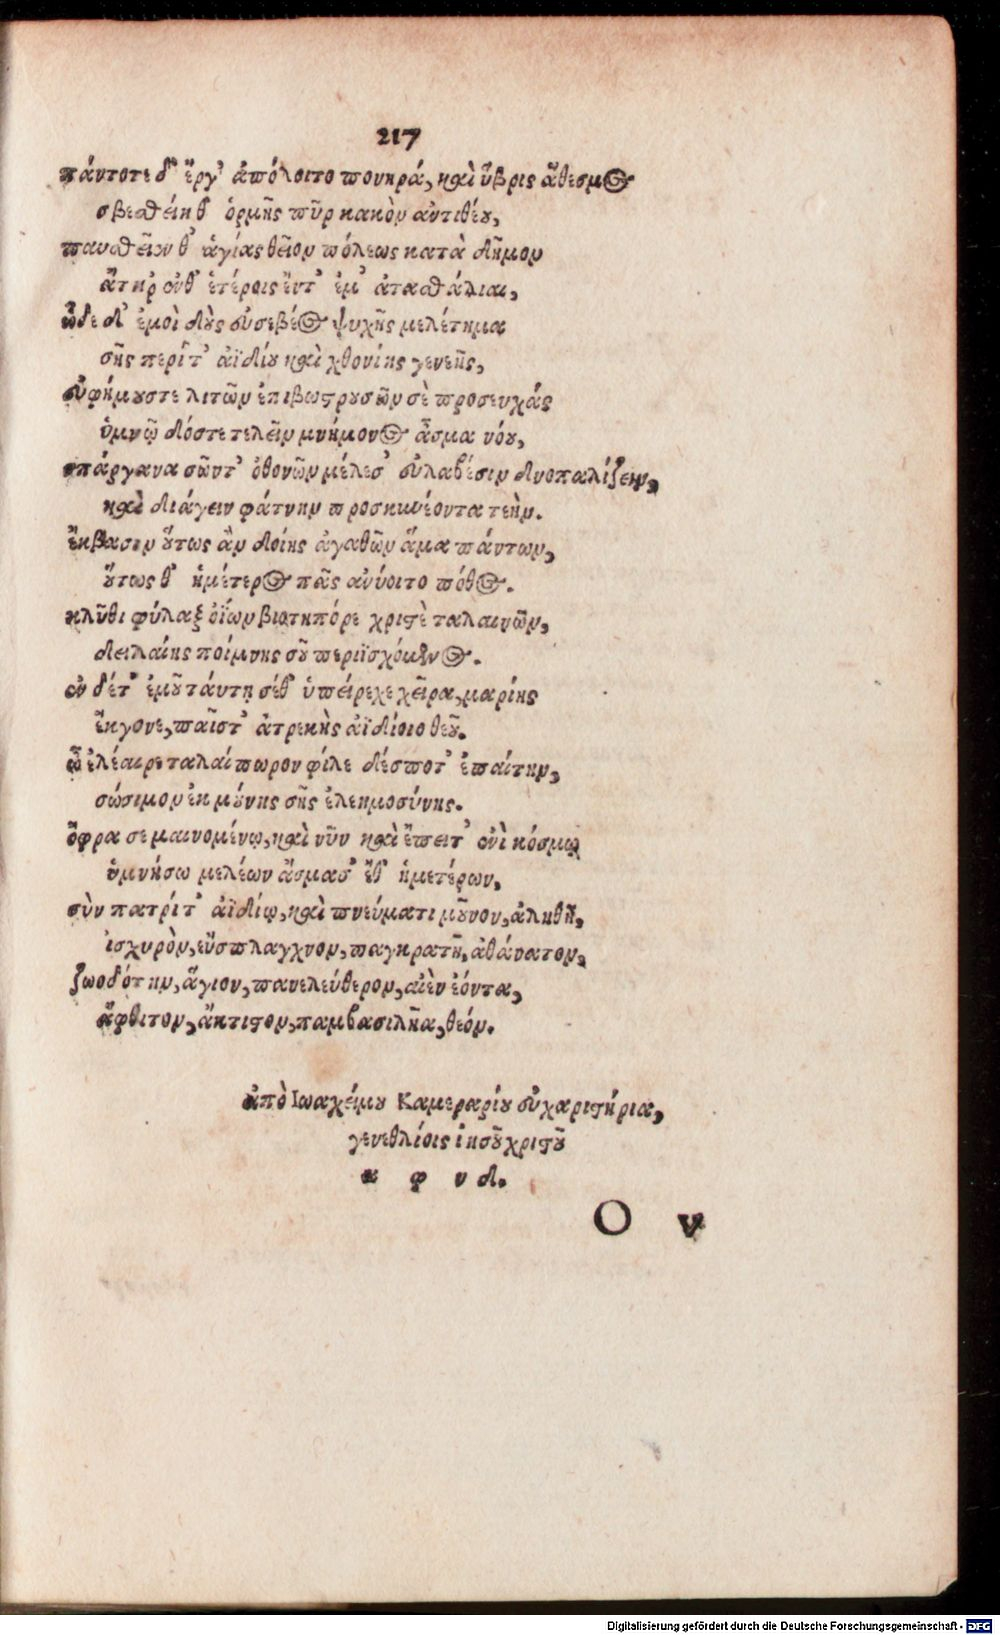 217
πάντοτε δ' ἔργ' ἀπόλοιτο πονηρά, καὶ ὕβρις ἄθεσμος
σβεσθείη θ' ὁρμῆς πῦρ κακὸν ἀντιθέου,
πανσθεῖων θ' ἁγίας θεῖον πόλεως κατὰ δῆμον
ἄτηρ ἐνθ' ἑτέροις ἔντ' ἐμ' ἀτασθάλιαι,
ὧδε δ' ἐμοὶ δὸς εὐσεβέος ψυχῆς μελέτημα
σῆς περί τ' ἀϊδίου καὶ χθονίης γενεῆς,
εὐφήμους τε λιτῶν ἐπιβωστρουσῶν σὲ προσευχάς
ὑμνῷ δόστε τελεῖν μνήμονος ἆσμα νόου,
σπάργανα σῶντ' ὀθονῶν μέλεσ' εὐλαβέσιν δνοπαλίζειν,
καὶ διάγειν φάτνην προσκυνέοντα τεήν.
ἔκβασιν οὕτως ἂν δοίης ἀγαθῶν ἅμα πάντων,
οὕτως θ' ἡμέτερος πᾶς ἀνύοιτο πόθος.
κλῦθι φύλαξ ὀΐων βιοτηπόρε χριστὲ ταλαινῶν,
δειλαίης ποίμνης σοῦ περιϊσχόμενος.
ἐν δέτ' ἐμοῦ ταύτῃ σέθ' ὑπείρεχε χεῖρα, μαρίης
ἔκγονε, παῖς τ' ἀτρεκὴς ἀϊδίοιο θεοῦ.
ὦ ἐλέαιρε ταλαίπωρον φίλε δέσποτ' ἐπαίτην,
σώσιμον ἐκ μούνης σῆς ἐλεημοσύνης.
ὄφρα σε μαινομένῳ, καὶ νῦν καὶ ἔπειτ' ἐνὶ κόσμῳ
ὑμνήσω μελέων ἄσμασ' ἔθ' ἡμετέρων,
σὺν πατρί τ' ἀϊδίῳ, καὶ πνεύματι μοῦνον, ἀληθῆ,
ἰσχυρὸν, εὔσπλαγχνον, παγκρατῆ, ἀθάνατον,
ζωοδότην, ἅγιον, πανελεύθερον, αἰὲν ἐόντα,
ἄφθιτον, ἄκτιστον, παμβασιλῆα, θεόν.
ἀπὸ Ιωαχείμου Καμεραρίου εὐχαριστήρια,
γενεθλίοις ἰησοῦ χριστοῦ
α φ ν δ.
O v
Digitalisierung gefördert durch die Deutsche Forschungsgemeinschaft - DFG